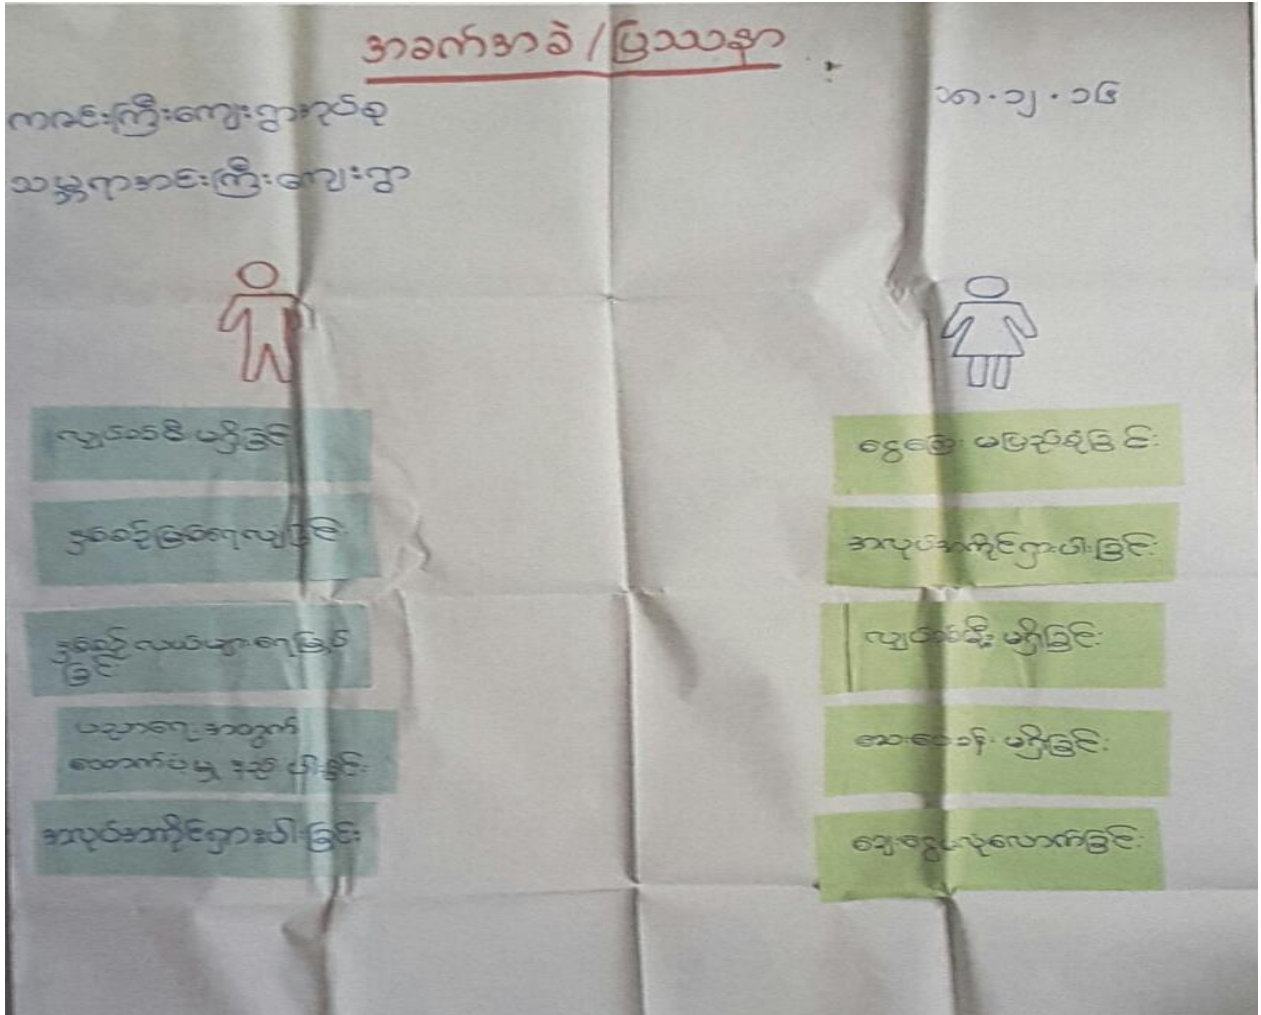 အခက်အခဲ / ပြဿနာ
ကင်းကြီးကျေးရွာအုပ်စု
သမ္ဗရာအင်းကြီးကျေးရွာ
လျှပ်စစ်မီး မရှိခြင်း
နှစ်စဉ်မြစ်ရေလျှံခြင်း
နှစ်စဉ် လယ်ယာများရေမြုပ်
ခြင်း
ပညာရေးအတွက်
ထောက်ပံ့မှု နည်းပါးခြင်း
အလုပ်အကိုင်ရှားပါးခြင်း
ငွေကြေး မပြည့်စုံခြင်း
အလုပ်အကိုင်ရှားပါးခြင်း
လျှပ်စစ်မီး မရှိခြင်း
ဆေးပေးခန်း မရှိခြင်း
ချေးငွေမလုံလောက်ခြင်း